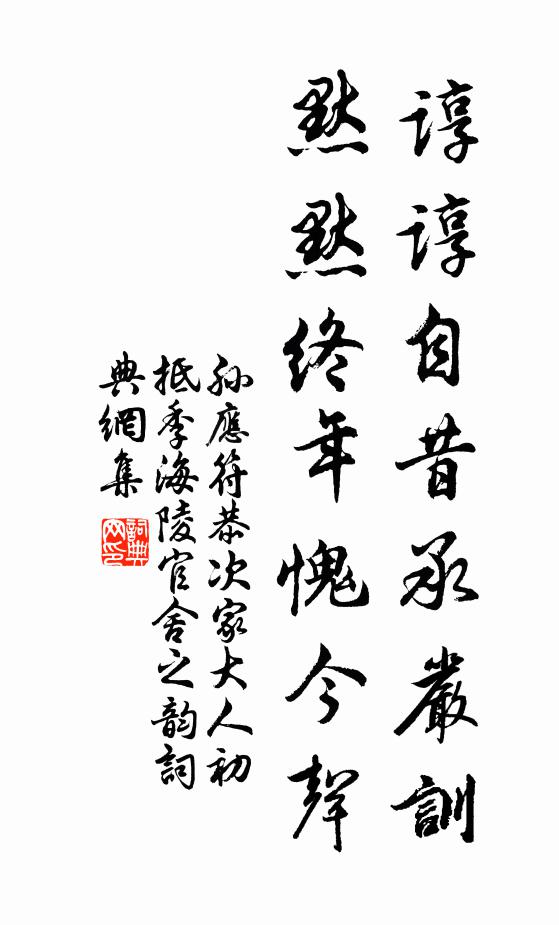 諄諄自昔承嚴訓
默默終年愧今聲
孫應符恭次家大人初
抵季海陵官舍之韵詞
典網集
詞典网印